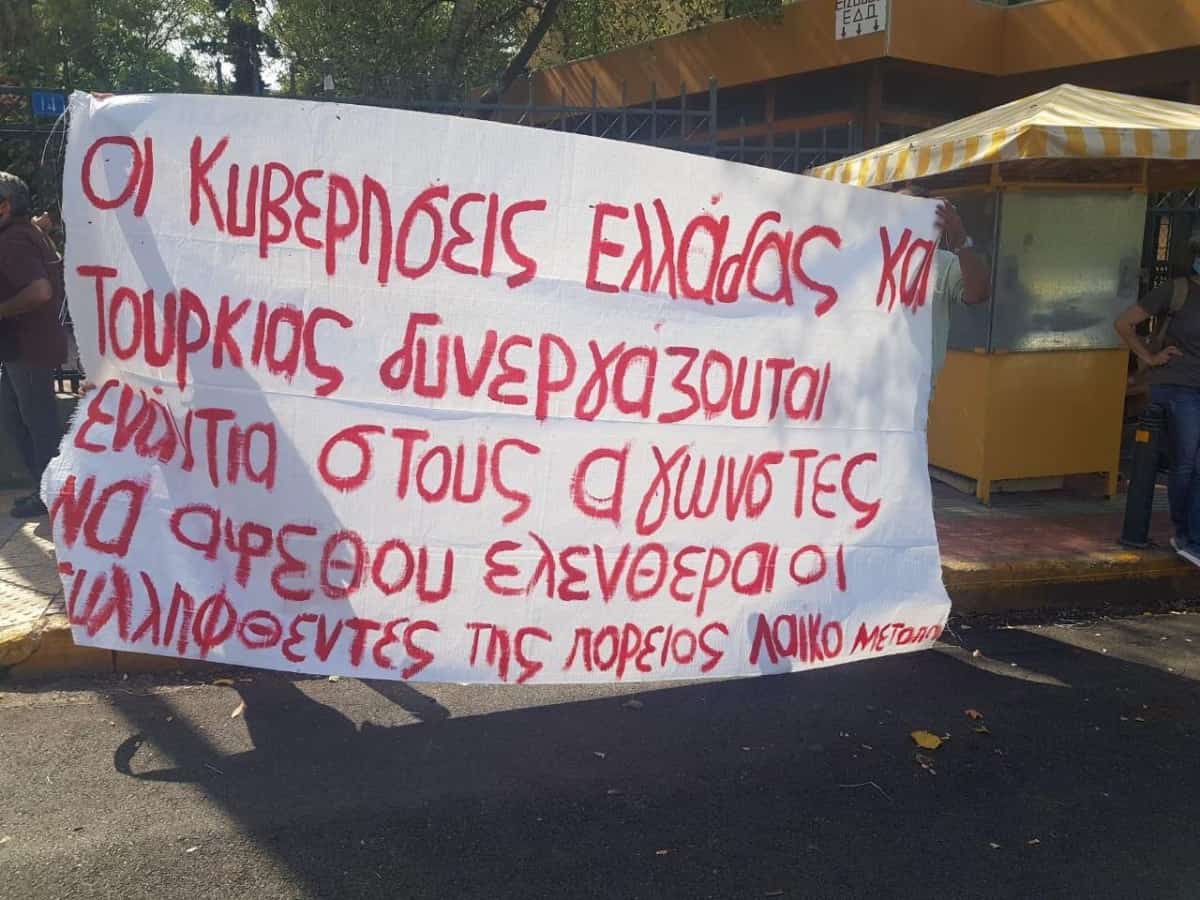 ΕΙΣΟΔΟΣ
ΕΔΔ
14
ΟΙ ΚυβΕΡησεις Ελλάδας και
Τουρκιας συνεργάζουται
Ενάντια στους αγωνστες
Να αφεθου ελενθεραι οι
Συλληφθεντες της πορειος Λαικο Μετωπο